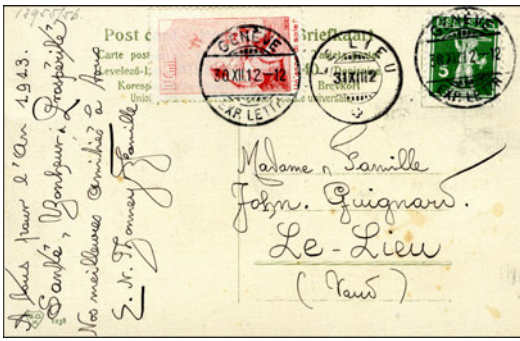 13950/56.
Post c Briefkaart
Carte post
Levelező-L
Koresp Brevkort
Union le universale
GENÈVE
30.XII.12-12
EXP. LETTR
LIEU
31XII12
5
GENÈVE
30.XII.12-12
EXP. LETTR
A tous pour l'An 1913.
Santé, Bonheur & Prospérité
Nos meilleures amitiés à tous
Famille
Madame & Famille
John. Guignard.
Le-Lieu
(Vaud)